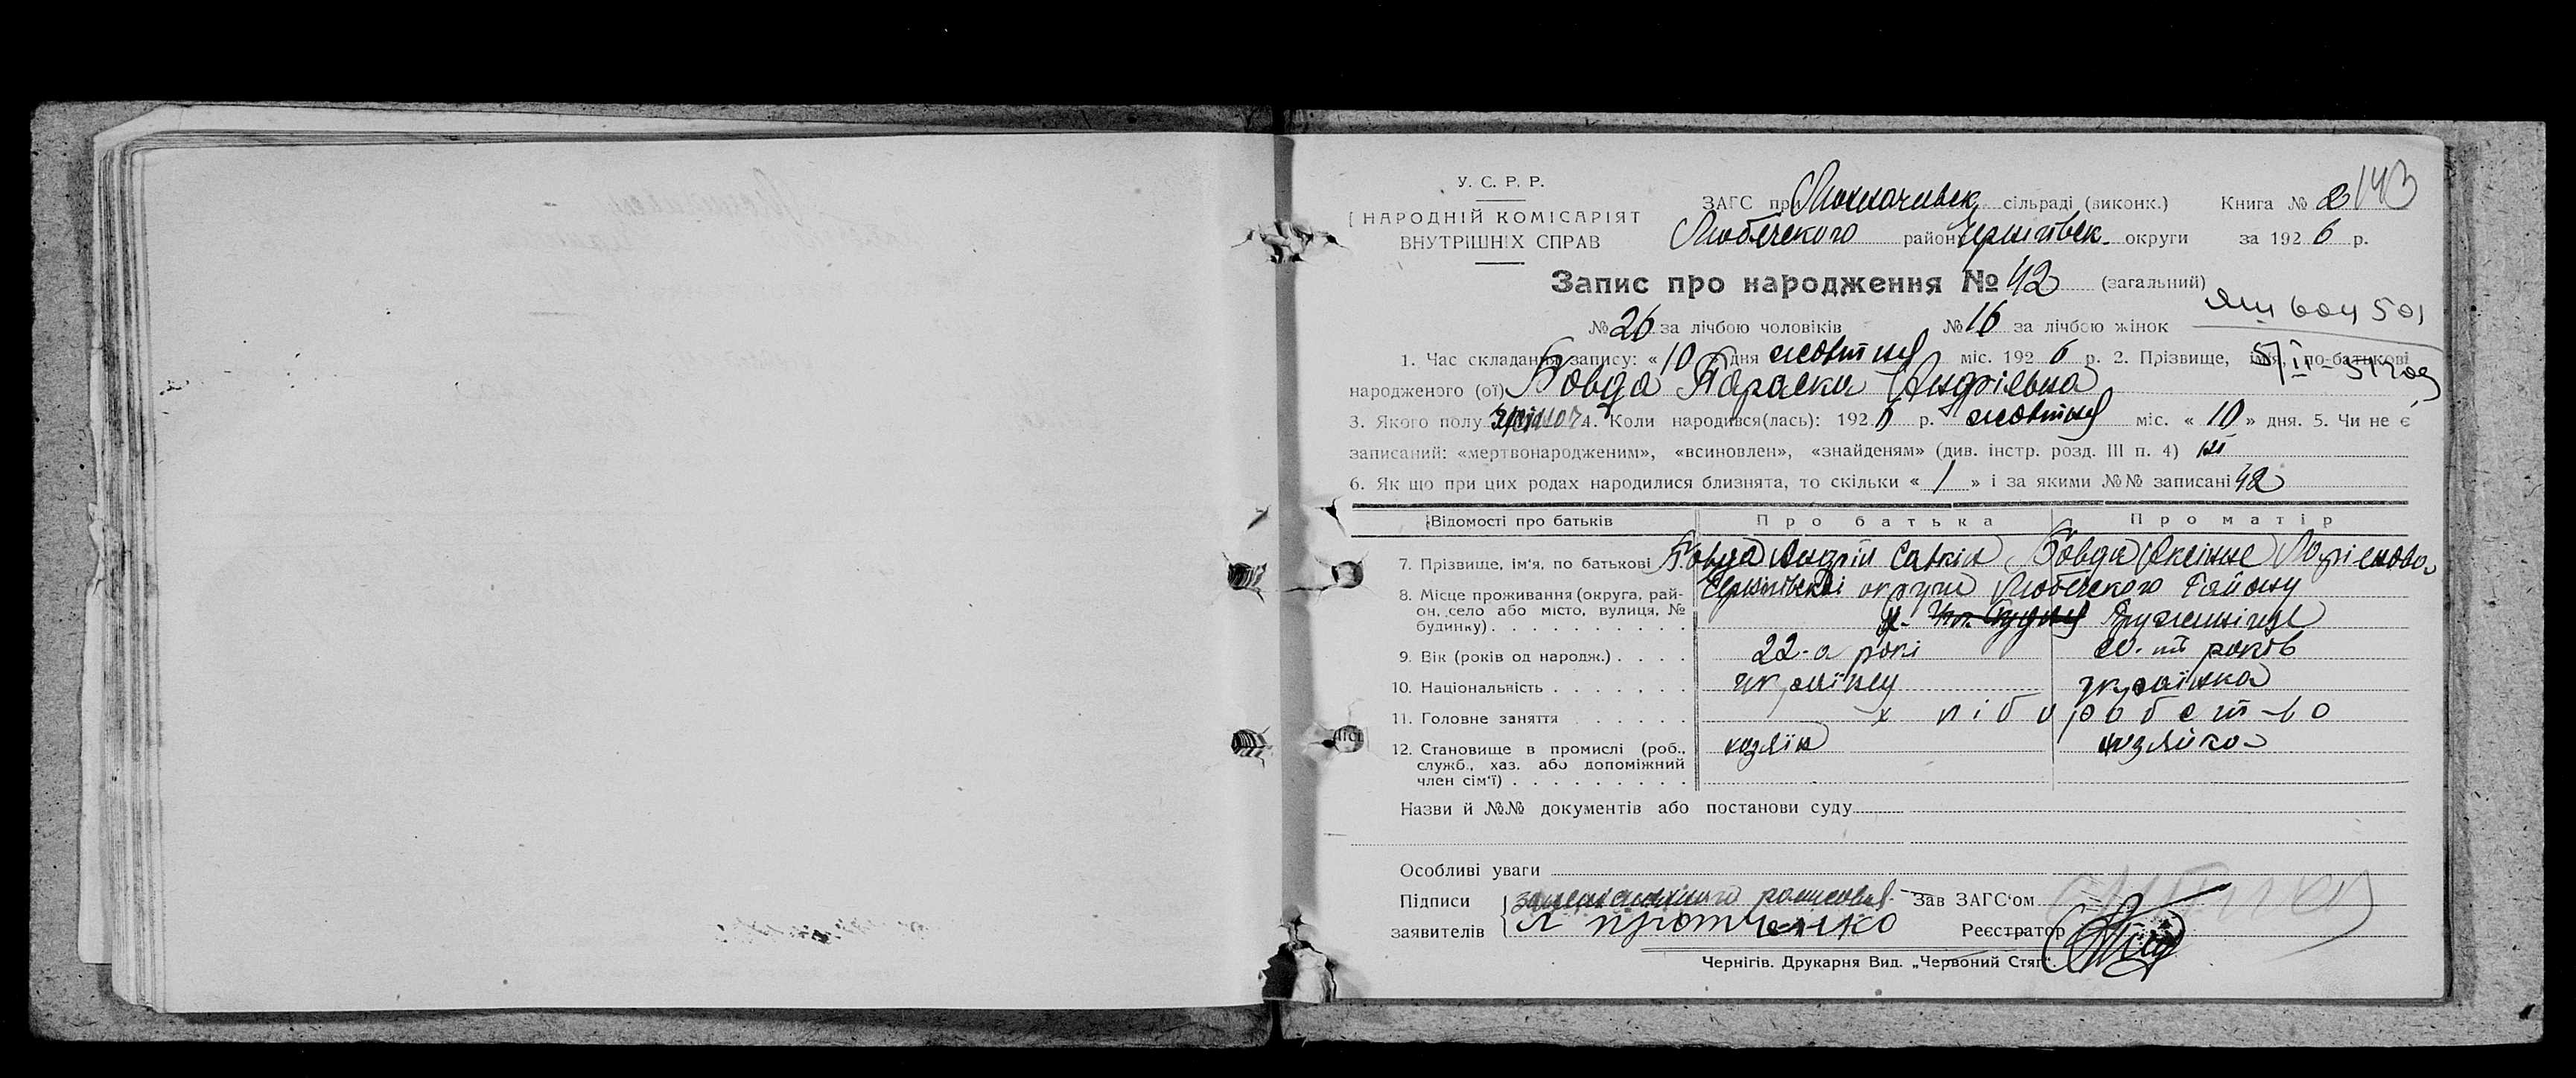 143
У. С. Р. Р.
НАРОДНІЙ КОМІСАРІЯТ
ВНУТРІШНІХ СПРАВ
ЗАГС при сільраді (виконк.) Книга № 2
Любечского району Чернігівск. округи за 1926 р.
Запис про народження № 42 (загальний)
№ 26 за лічбою чоловіків № 16 за лічбою жінок
1. Час складання запису: « 10 » дня жовтня міс. 1926 р. 2. Прізвище, ім'я, по-батькові
народженого (ої) Бовда Параска Андріївна
3. Якого полу 4. Коли народився(лась): 1926 р. жовтня міс. « 10 » дня. 5. Чи не є
записаний: «мертвонародженим», «всиновлен», «знайденям» (див. інстр. розд. III п. 4) ні
6. Як що при цих родах народилися близнята, то скільки « 1 » і за якими №№ записані 42
Відомості про батьків Про батька Про матір
7. Прізвище, ім'я, по батькові Бовда Андрій Савкін Бовда
8. Місце проживання (округа, рай- Чернігівскоі округи Любечского Району
он, село або місто, вулиця, №
будинку)
9. Вік (років од народж.) 22-а рокі 20-ті років
10. Національність українец українка
11. Головне заняття хліборобство
12. Становище в промислі (роб., хазяін хазяйка
служб., хаз. або допоміжний
член сім'ї)
Назви й №№ документів або постанови суду
Особливі уваги
Підписи Зав ЗАГС'ом
заявителів Реєстратор
Чернігів. Друкарня Вид. „Червоний Стяг".